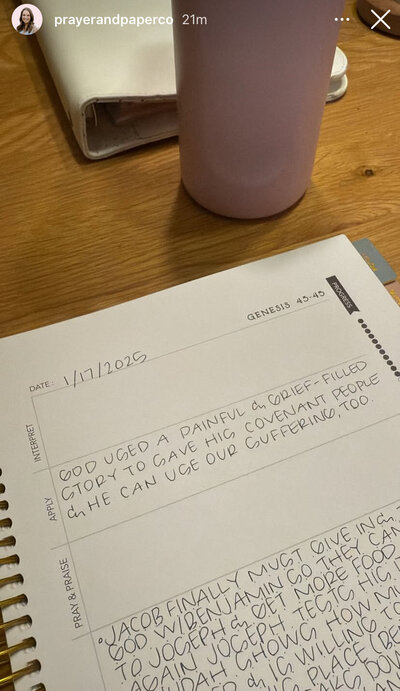 prayerandpaperco 21m
PROGRESS
GENESIS 43-45
DATE: 1/17/2025
INTERPRET
GOD USED A PAINFUL & GRIEF-FILLED
STORY TO SAVE HIS COVENANT PEOPLE
& HE CAN USE OUR SUFFERING, TOO.
APPLY
PRAY & PRAISE
•JACOB FINALLY MUST GIVE IN &
GOD W/ BENJAMIN SO THEY CAN
TO JOSEPH & GET MORE FOOD
AGAIN JOSEPH TESTS HIS
JUDAH SHOWS HOW
& IS WILLING TO
PLACE